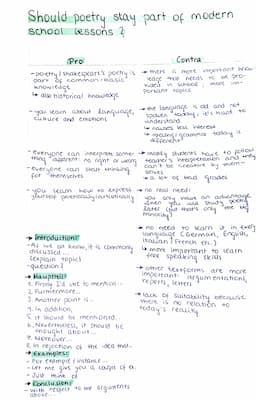 Should poetry stay part of modern
school lessons?
Pro
Contra
- poetry/Shakespeare's poetry is
part of common/basic
knowledge
↳ also historical knowledge
- you learn about language,
culture and emotions
- everyone can interpret some-
thing different: no right or wrong
- everyone can start thinking
for themselves
- you learn how to express
yourself
- there is more important know-
ledge that needs to be pro-
vided in school; more im-
portant topics
- the language is old and not
spoken today, it's hard to
understand
↳ causes less interest
↳ speaking/grammar today is
different
- mostly students have to follow
teacher's interpretation and
can't be creative by them-
selves
↳ a lot of bad grades
- no real need:
you only have an advantage
when you study poetry
later (and that's only the
minority)
- no need to learn it in every
language (German, English,
Italian, French etc.)
- more important to learn
free speaking skills
- other textforms are more
important: argumentations,
reports, letters
- lack of suitability because
there is no relation to
today's reality
→ Introduction:
- As we all know, it is commonly
discussed...
- (explain topic)
- question?
→ Hauptteil:
1. Firstly I'd like to mention...
2. Furthermore...
3. Another point is...
4. In addition,
5. It should be mentioned...
6. Nevertheless, it should be
thought about...
7. Moreover...
8. In rejection of the idea that...
→ Examples:
- For example / instance...
- Let me give you a
- Just think of
→ Conclusion:
- With respect to the arguments
above...